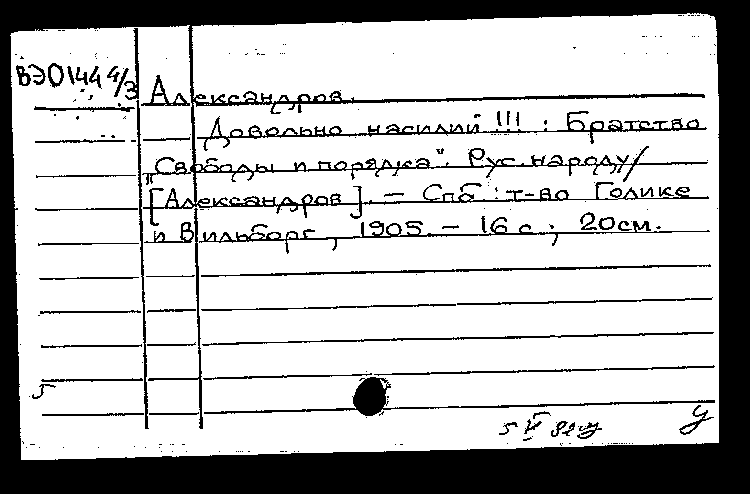 ВЭ0144 4/3
Александров.
Довольно насилий!!! : Братство
"Свободы и порядка". Рус. народу/
[Александров]. — Спб : т-во Голике
и Вильборг, 1905. — 16 с.; 20см.
5
5 VI 82 у